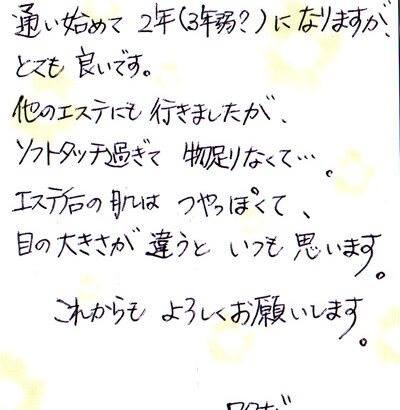 通い始めて 2年(3年弱?)になりますが、
とても 良いです。
他のエステにも 行きましたが、
ソフトタッチ過ぎて 物足りなくて…。
エステ后の肌は つやっぽくて、
目の大きさが 違うと いつも 思います。
これからも よろしくお願いします。